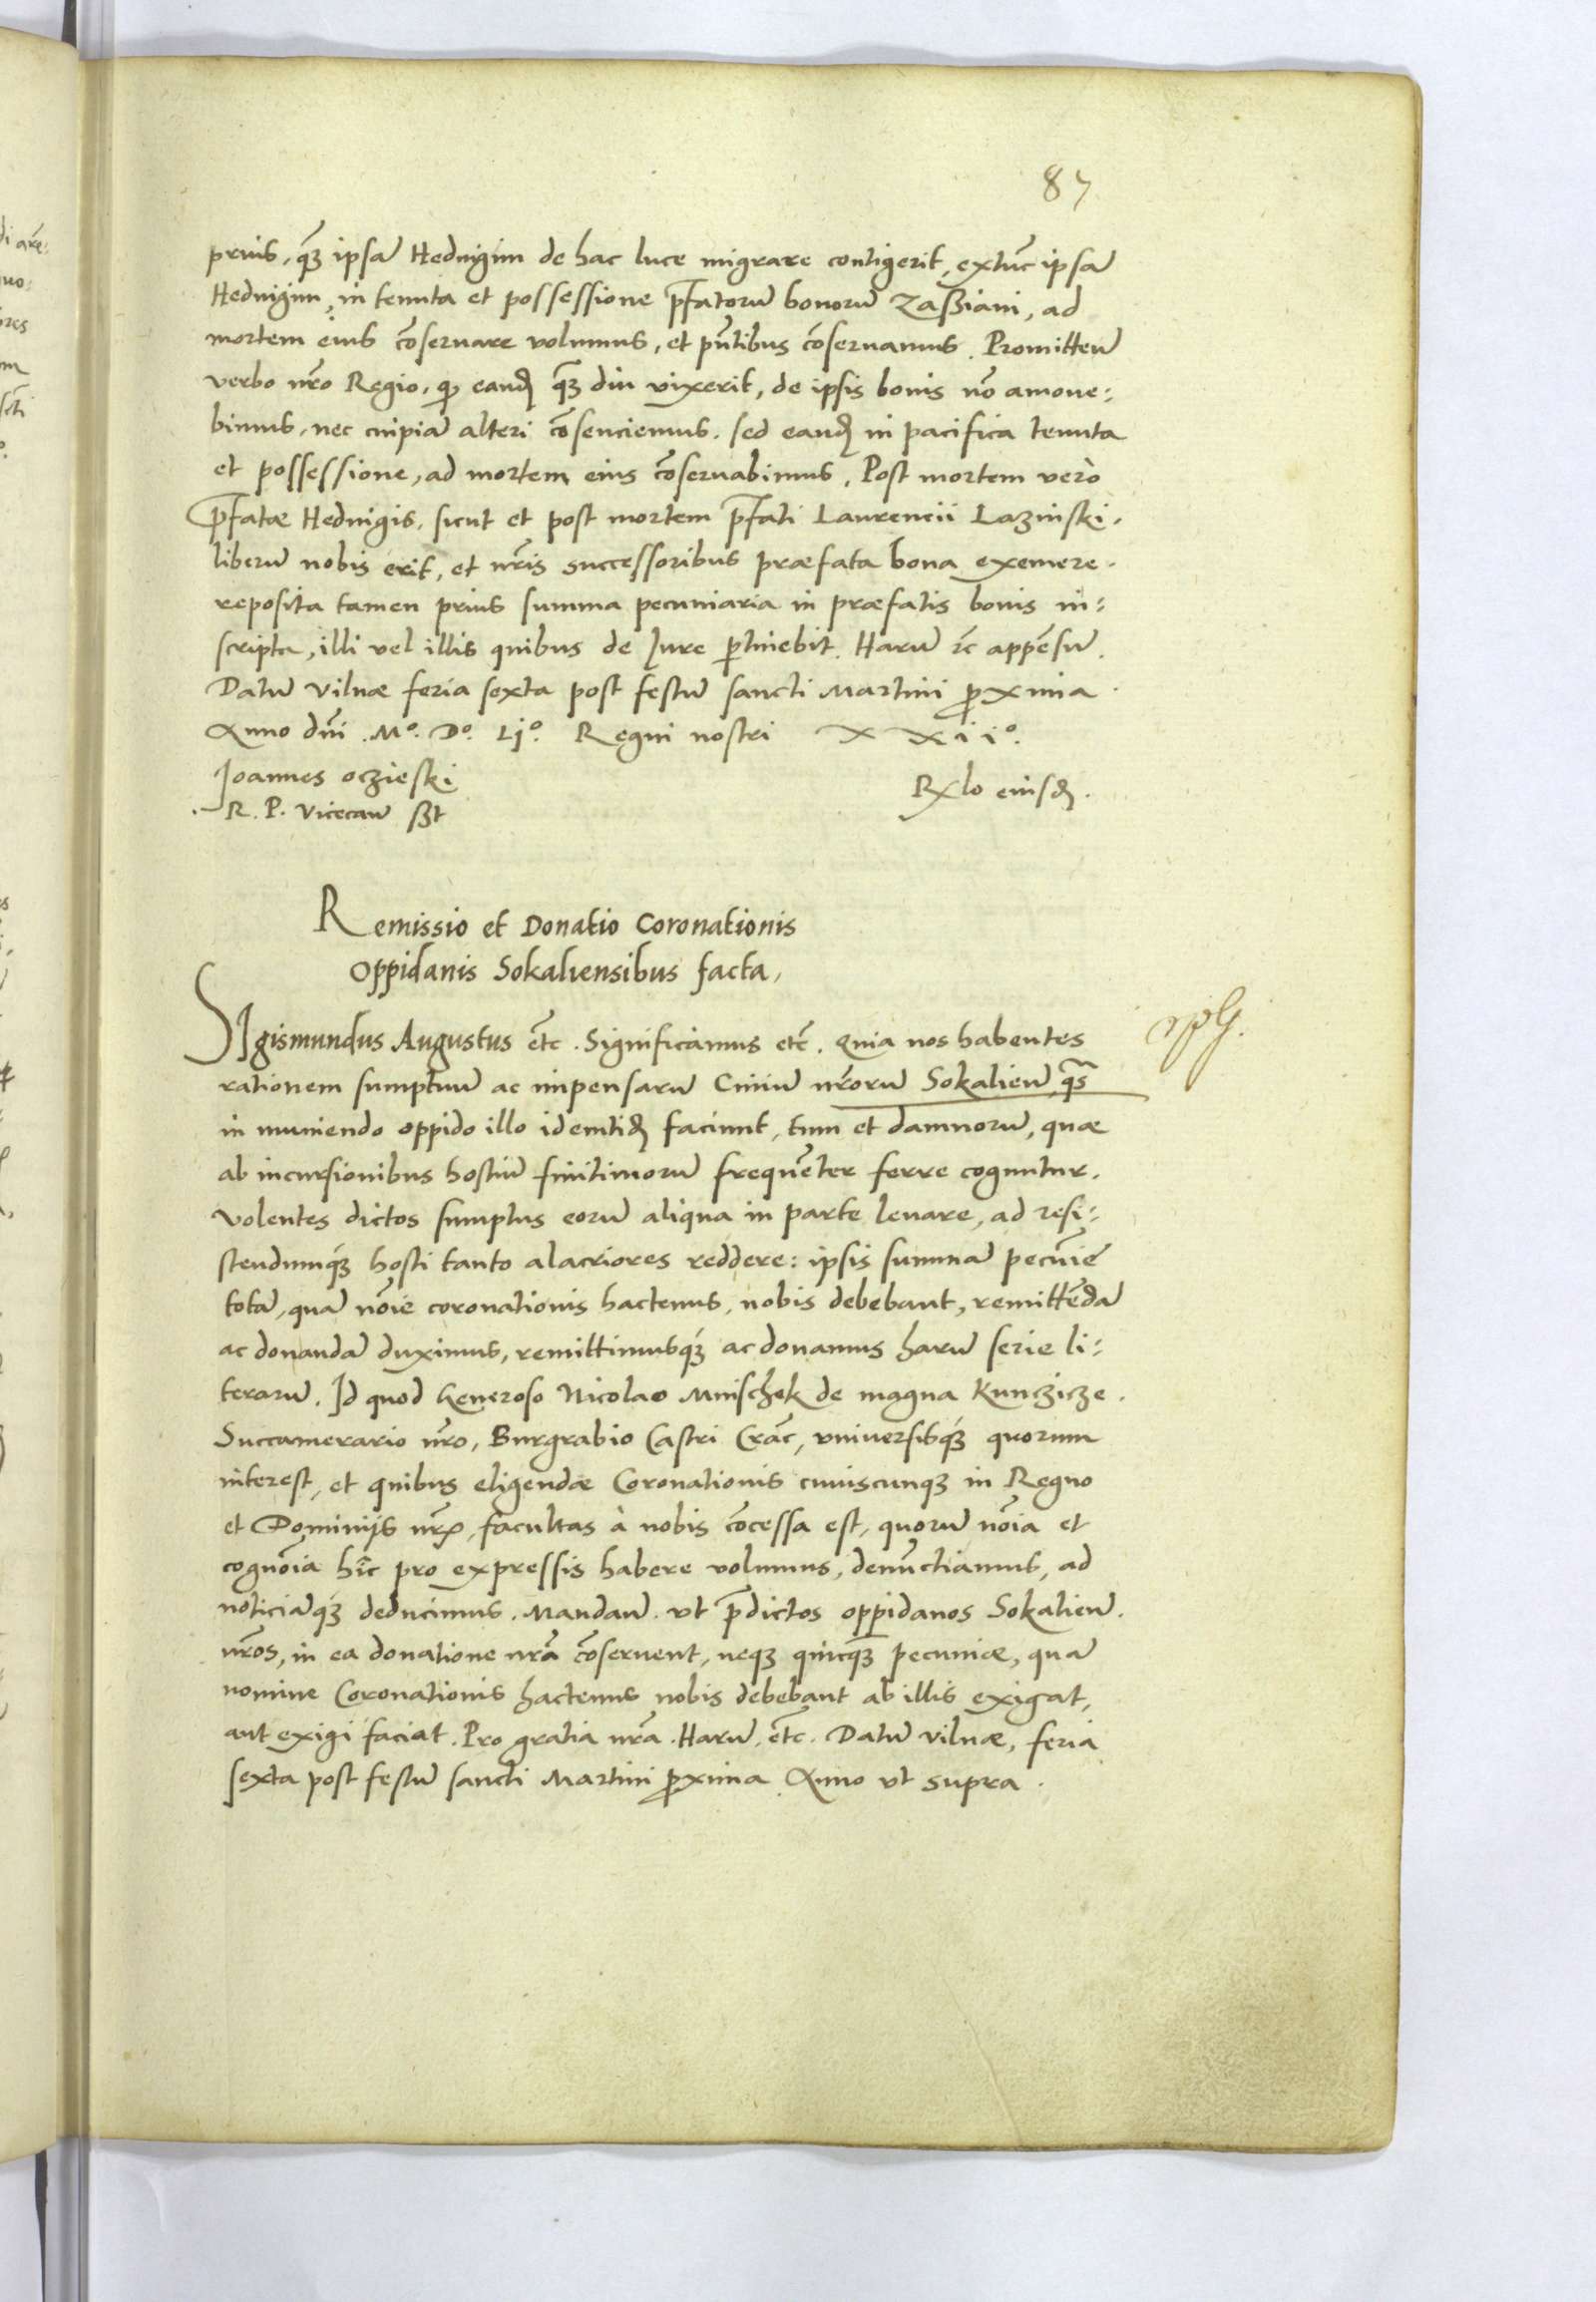 87
prius, q̃ʒ ipsã Heduigim de hac luce migrare contigerit, extũc ipsã
Heduigim, in tenuta et possessione p̃fatorũ bonorũ Zassiani, ad
mortem eius cõseruare volumus, et pñtibus cõseruamus. Promitteñ
verbo nr̃o Regio, ꝙ eandẽ q̃ʒ diu vixerit, de ipsis bonis nõ amoue:
bimus, nec cuipiã alteri cõsenciemus. sed eandẽ in pacifica tenuta
et possessione, ad mortem eius cõseruabimus. Post mortem verò
p̃fatæ Heduigis, sicut et post mortem p̃fati Laurencii Lazinski,
liberũ nobis erit, et nr̃is successoribus præfata bona exemere.
reposita tamen prius summa pecuniaria in præfatis bonis in:
scripta, illi vel illis quibus de Jure ꝑtinebit. Harũ ꝛc̃ appẽsũ.
Datũ Vilnæ feria sexta post festũ sancti Martini ꝓxima.
Anno dñi .Mº. Dº. Ljº. Regni nostri XXiiº.
Joannes oczieski
R. P. Vicecañ sst
Relo eiusdẽ.
Remissio et Donatio Coronationis
Oppidanis Sokaliensibus facta,
SIgismundus Augustus etc̃. Significamus etc̃. Quia nos habentes
rationem sumptuũ ac impensarũ Ciuiũ nr̃orũ Sokalieñ, q̃s
in muniendo oppido illo idemtidẽ faciunt, tum et damnorũ, quæ
ab incursionibus hostiũ finitimorũ frequẽter ferre coguntur.
Volentes dictos sumptus eorũ aliqua in parte leuare, ad resi:
stendumq́ʒ hosti tanto alacriores reddere: ipsis summã pecũie
totã, quã nõie coronationis hactenus, nobis debebant, remittẽdã
ac donandã duximus, remittimusq́ʒ ac donamus harũ serie li:
terarũ. Id quod Generoso Nicolao Mnischek de magna Kunczicze.
Succamerario nr̃o, Burgrabio Castri Crac̃, vniuersisq́ʒ quorum
interest, et quibus eligendæ Coronationis cuiuscunqʒ in Regno
et Dominijs nr̃is, facultas à nobis cõcessa est, quorũ nõia et
cognõia hĩc pro expressis habere volumus, denũctiamus, ad
noticiãq́ʒ deducimus. Mandañ. vt p̃dictos oppidanos Sokalieñ.
nr̃os, in ea donatione nr̃a cõseruent, neqʒ quicq̃ʒ pecuniæ, quã
nomine Coronationis hactenus nobis debebant ab illis exigat,
aut exigi faciat. Pro gratia nr̃a. Harũ. etc̃. Datũ Vilnæ, feria
sexta post festũ sancti Martini ꝓxima. Anno vt supra.